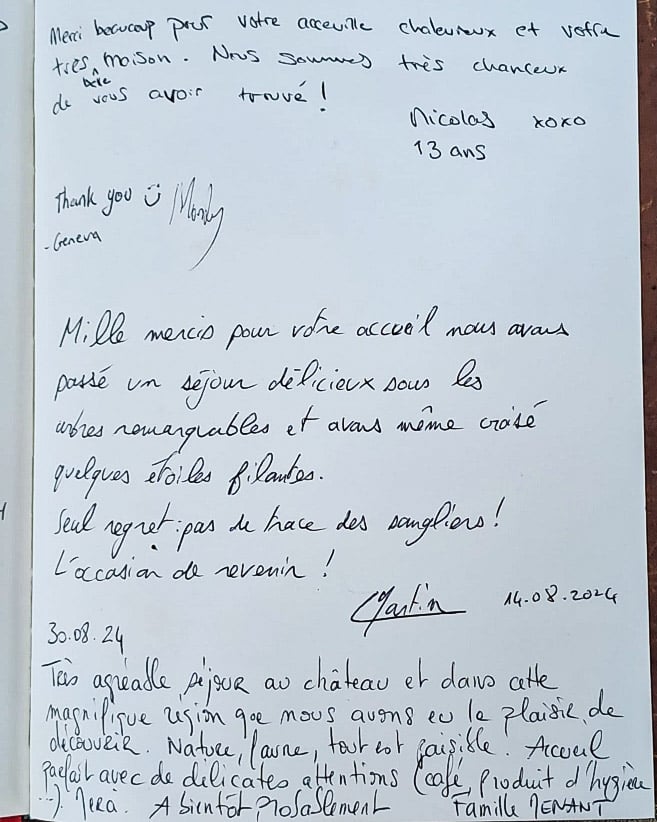 Merci beaucoup pour votre acceuille chaleureux et votre
très belle maison. Nous sommes très chanceux
de vous avoir trouvé !
Nicolas xoxo
13 ans
Thank you
- Geneva
Mille mercis pour votre accueil nous avons
passé un séjour délicieux sous les
arbres remarquables et avons même croisé
quelques étoiles filantes.
Seul regret : pas de trace des sangliers !
L'occasion de revenir !
Martin 14.08.2024
30.08.24
Très agréable séjour au château et dans cette
magnifique région que nous avons eu le plaisir de
découvrir. Nature, faune, tout est paisible. Accueil
parfait avec de délicates attentions (café, produit d'hygiène
...). A bientôt probablement Famille